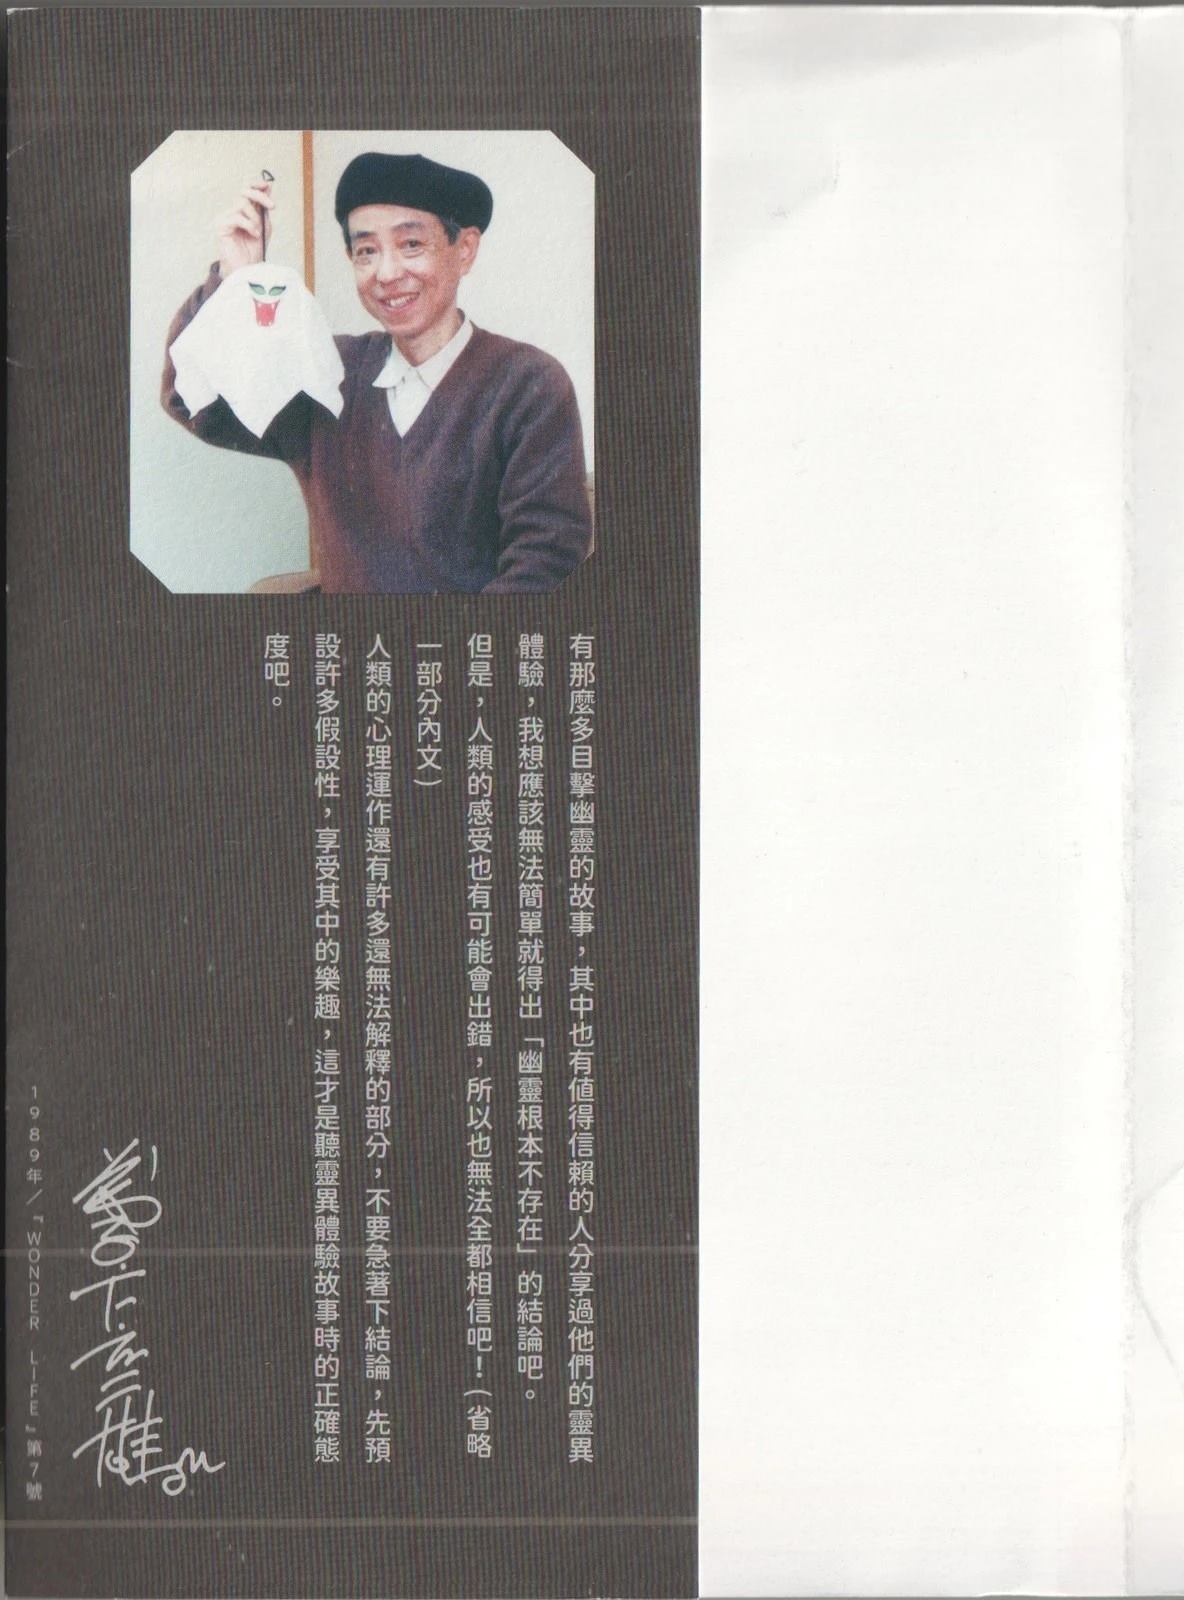 有那麼多目擊幽靈的故事，其中也有值得信賴的人分享過他們的靈異
體驗，我想應該無法簡單就得出「幽靈根本不存在」的結論吧。
但是，人類的感受也有可能會出錯，所以也無法全都相信吧！（省略
一部分內文）
人類的心理運作還有許多還無法解釋的部分，不要急著下結論，先預
設許多假設性，享受其中的樂趣，這才是聽靈異體驗故事時的正確態
度吧。
1989年／『WONDER LIFE』第7號